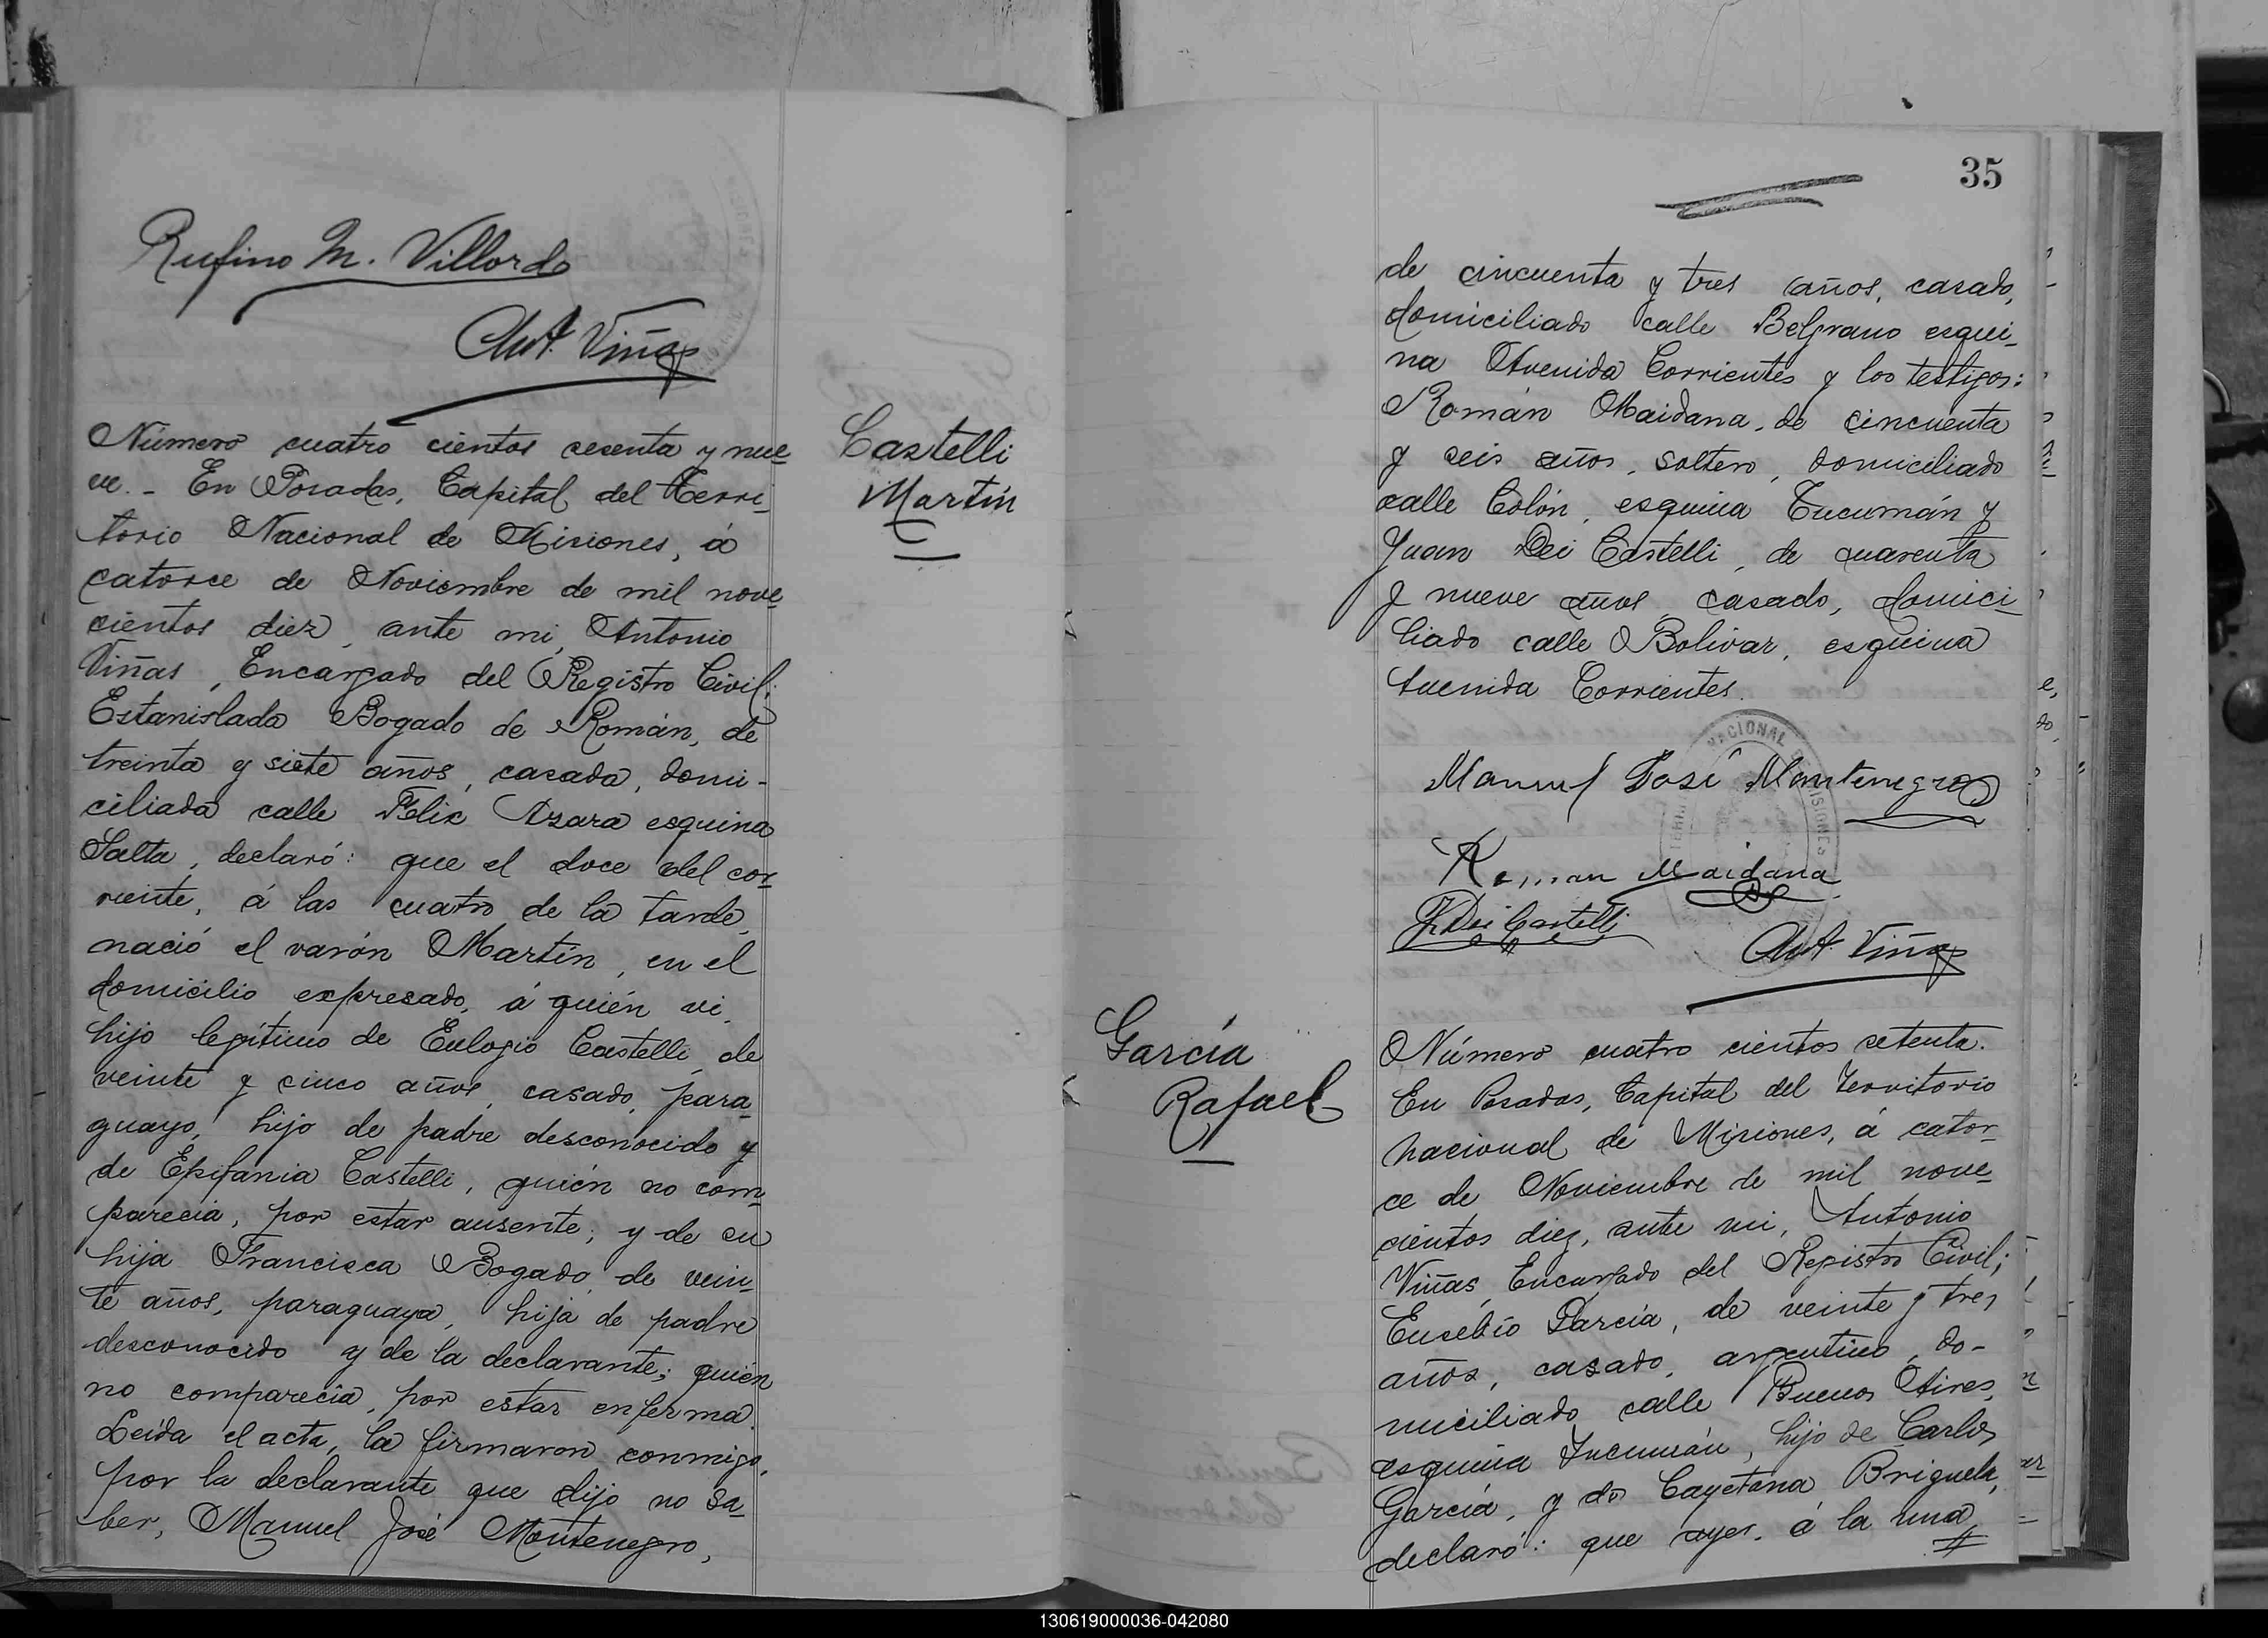 Rufino M. Villordo
Ant. Viñas
Número cuatro cientos cesenta y nue
ve. - En Posadas, Capital del Terri
torio Nacional de Misiones, á
catorce de Noviembre de mil nove
cientos diez, ante mi, Antonio
Viñas, Encargado del Registro Civil;
Estanislada Bogado de Román, de
treinta y siete años, casada, domi-
ciliada calle Felix Azara esquina
Salta, declaró: que el doce del cor
riente, á las cuatro de la tarde,
nació el varón Martín, en el
domicilio expresado, á quién vi,
hijo legítimo de Eulogio Castelli, de
veinte y cinco años, casado, para
guayo, hijo de padre desconocido y
de Epifania Castelli, quién no com
parecia, por estar ausente; y de su
hija Francisca Bogado, de vein
te años, paraguaya, hija de padre
desconocido y de la declarante; quién
no comparecia, por estar enferma.
Leída el acta, la firmaron conmigo,
por la declarante que dijo no sa
ber, Manuel José Montenegro,
Castelli
Martín
35
de cincuenta y tres años, casado,
domiciliado calle Belgrano esqui_
na Avenida Corrientes y los testigos:
Román Maidana, de cincuenta
y seis años, soltero, domiciliado
calle Colón, esquina Tucumán y
Juan Dei Castelli, de cuarenta
y nueve años, casado, domici
liado calle Bolivar, esquina
Avenida Corrientes.
Manuel José Montenegro
Roman Maidana
J. Dei Castelli
Ant. Viñas
García
Rafael
Número cuatro cientos setenta.
En Posadas, Capital del Territorio
nacional de Misiones, á cator_
ce de Noviembre de mil nove
cientos diez, ante mi, Antonio
Viñas, Encargado del Registro Civil;
Eusebio García, de veinte y tres
años, casado, argentino, do-
miciliado calle Buenos Aires,
esquina Tucumán, hijo de Carlos
García, y de Cayetana Briguela,
declaró: que ayer, á la una
130619000036-042080